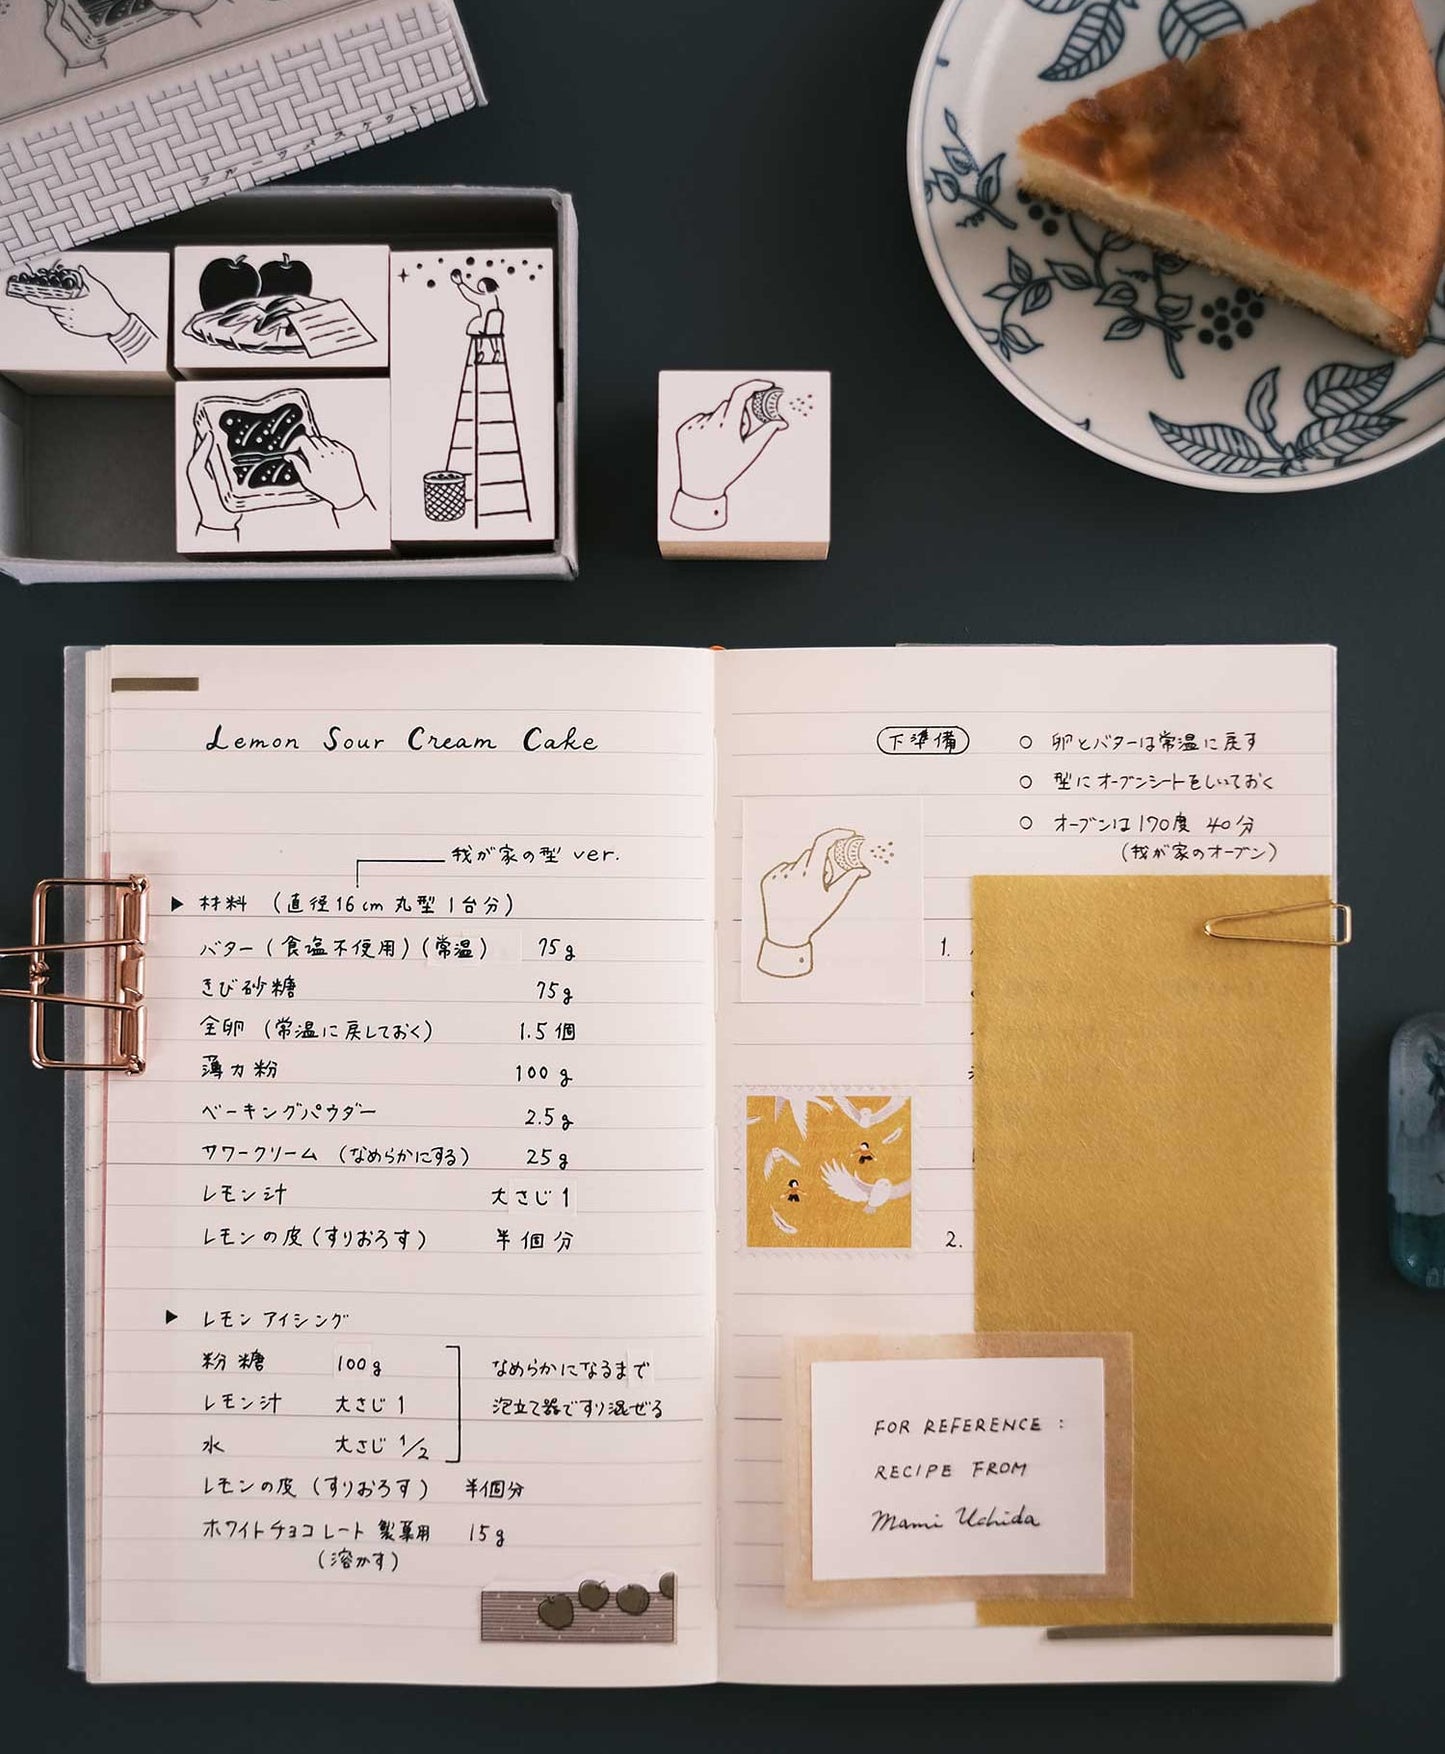 フルーツバスケット
Lemon Sour Cream Cake
我が家の型 ver.
▶ 材料 (直径16cm 丸型 1台分)
バター (食塩不使用) (常温) 75g
きび砂糖 75g
全卵 (常温に戻しておく) 1.5個
薄力粉 100g
ベーキングパウダー 2.5g
サワークリーム (なめらかにする) 25g
レモン汁 大さじ1
レモンの皮 (すりおろす) 半個分
▶ レモンアイシング
粉糖 100g
レモン汁 大さじ1
水 大さじ1/2
なめらかになるまで
泡立て器ですり混ぜる
レモンの皮 (すりおろす) 半個分
ホワイトチョコレート 製菓用 15g
(溶かす)
下準備
○ 卵とバターは常温に戻す
○ 型にオーブンシートをしいておく
○ オーブンは170度 40分
(我が家のオーブン)
1.
2.
FOR REFERENCE :
RECIPE FROM
Mami Uchida